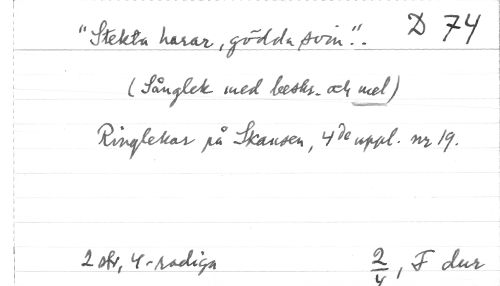 D 74
"Stekta harar, gödda svin"..
(Sånglek med beskr. och mel)
Ringlekar på Skansen, 4de uppl. nr 19.
2 str, 4-radiga
2/4, F dur